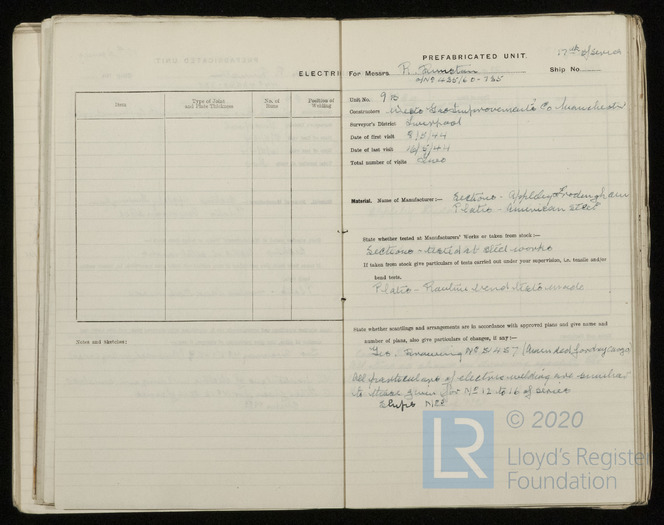 PREFABRICATED UNIT.
17th of Series
ELECTRI For Messrs. R. Ship No.
O/No 435/60-735
Item Type of Joint and Plate Thickness No. of Runs Position of Welding
Unit No. 9B
Constructors Improvements Co Manchester
Surveyor's District Liverpool
Date of first visit 8/5/44
Date of last visit 10/5/44
Total number of visits Two
Material. Name of Manufacturer:— Sections - Appleby Frodingham
Plates - American Steel
State whether tested at Manufacturers' Works or taken from stock:—
Sections - tested at steel works
If taken from stock give particulars of tests carried out under your supervision, i.e. tensile and/or
bend tests.
Plates - Routine bend tests made
State whether scantlings and arrangements are in accordance with approved plans and give name and
number of plans, also give particulars of changes, if any:—
Yes. Drawing No 5457 (Amended
All particulars of electric welding are similar
to those given for No 12 to 16 of series
Notes and Sketches:
© 2020
LR
Lloyd's Register
Foundation